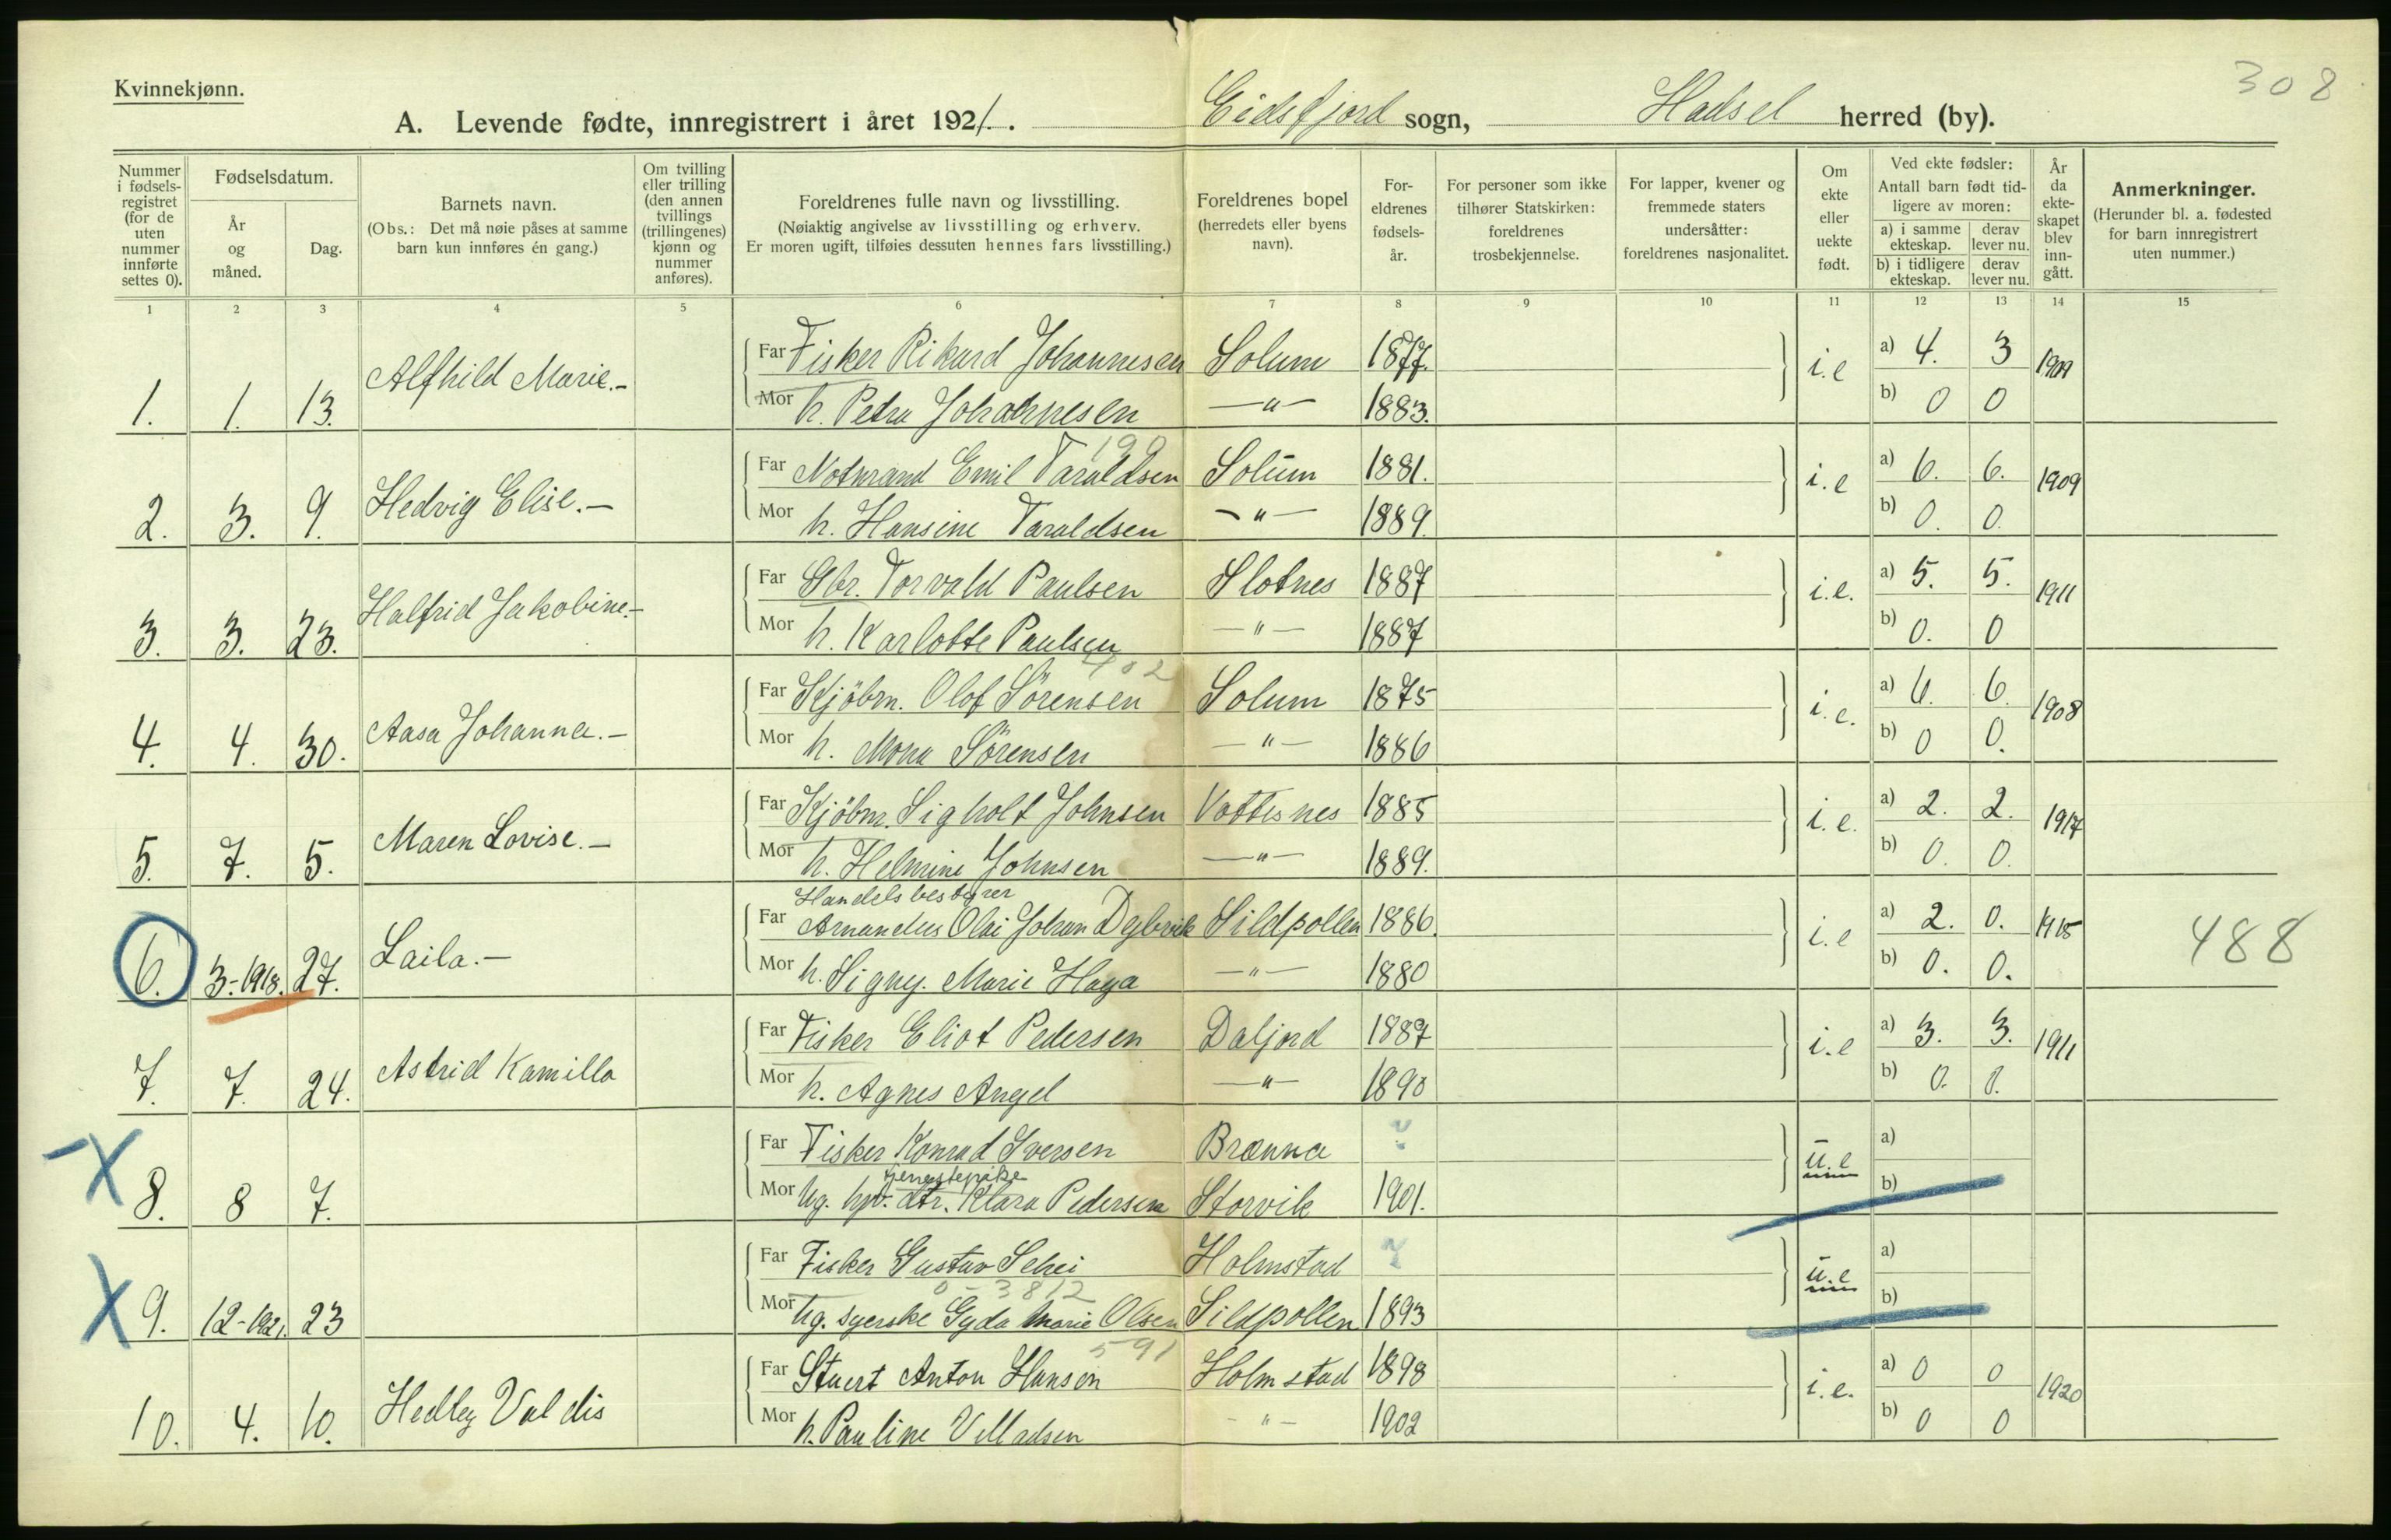 308
Kvinnekjønn.
A. Levende fødte, innregistrert i året 1921. Eidsfjord sogn, Hadsel herred (by).
Nummer i fødsels- registret (for de uten nummer innførte settes 0).
Fødselsdatum.
År og måned.
Dag.
Barnets navn.
(Obs.: Det må nøie påses at samme barn kun innføres én gang.)
Om tvilling eller trilling (den annen tvillings (trillingenes) kjønn og nummer anføres).
Foreldrenes fulle navn og livsstilling.
(Nøiaktig angivelse av livsstilling og erhverv.
Er moren ugift, tilføies dessuten hennes fars livsstilling.)
Foreldrenes bopel
(herredets eller byens navn).
For- eldrenes fødsels- år.
For personer som ikke tilhører Statskirken: foreldrenes trosbekjennelse.
For lapper, kvener og fremmede staters undersåtter: foreldrenes nasjonalitet.
Om ekte eller uekte født.
Ved ekte fødsler:
Antall barn født tid- ligere av moren:
a) i samme ekteskap. derav lever nu.
b) i tidligere ekteskap. derav lever nu.
År da ekte- skapet blev inn- gått.
Anmerkninger.
(Herunder bl. a. fødested for barn innregistrert uten nummer.)
1 2 3 4 5 6 7 8 9 10 11 12 13 14 15
Far Fisker Rikard Johannesen Solum 1877. a) 4. 3
1. 1. 13. Alfhild Marie.- i.e 1909
Mor h. Petra Johannesen -"- 1883. b) 0 0
199
Far Notmand Emil Taraldsen Solum 1881. a) 6. 6.
2. 3. 9. Hedvig Elise.- i.e 1909
Mor h. Hansine Taraldsen -"- 1889. b) 0. 0.
Far Gbr. Torvald Paulsen Slotnes 1887 a) 5. 5.
3. 3. 23. Halfrid Jakobine.- i.e. 1911
Mor h. Karlotte Paulsen -"- 1887 b) 0. 0
402
Far Kjöbm. Olof Sörensen Solum 1875 a) 6. 6.
4. 4. 30. Aasa Johanna.- i.e. 1908
Mor h. Mona Sörensen -"- 1886 b) 0 0.
Far Kjöbm. Sigholt Johnsen Vottesnes 1885 a) 2. 2.
5. 7. 5. Maren Lovise.- i.e. 1917
Mor h. Helmine Johnsen -"- 1889. b) 0. 0.
Handelsbestyrer
Far Amandus Olai Johan Dybvik Sildpollen 1886. a) 2. 0.
6. 3.-1918. 27. Laila.- i.e 1915 488
Mor h. Signy. Marie Haga -"- 1880 b) 0. 0.
Far Fisker Eliot Pedersen Daljord 1887 a) 3. 3.
7. 7. 24. Astrid Kamilla i.e 1911
Mor h. Agnes Angel -"- 1890 b) 0. 0.
Far Fisker Konrad Iversen Brænna ? a)
X 8. 8 7. u.e
tjenestepike
Mor Ug. hjv. dtr. Klara Pedersen Storvik 1901. b)
Far Fisker Gustav Schei Holmstad ? a)
0-3812
X 9. 12-1921. 23 u.e
Mor Ug. syerske Gyda Marie Olsen Sildpollen 1893 b)
591
Far Stuert Anton Hansen Holmstad 1898 a) 0 0
10. 4. 10. Hedley Valdis i.e. 1920
Mor h. Pauline Villadsen -"- 1902 b) 0 0